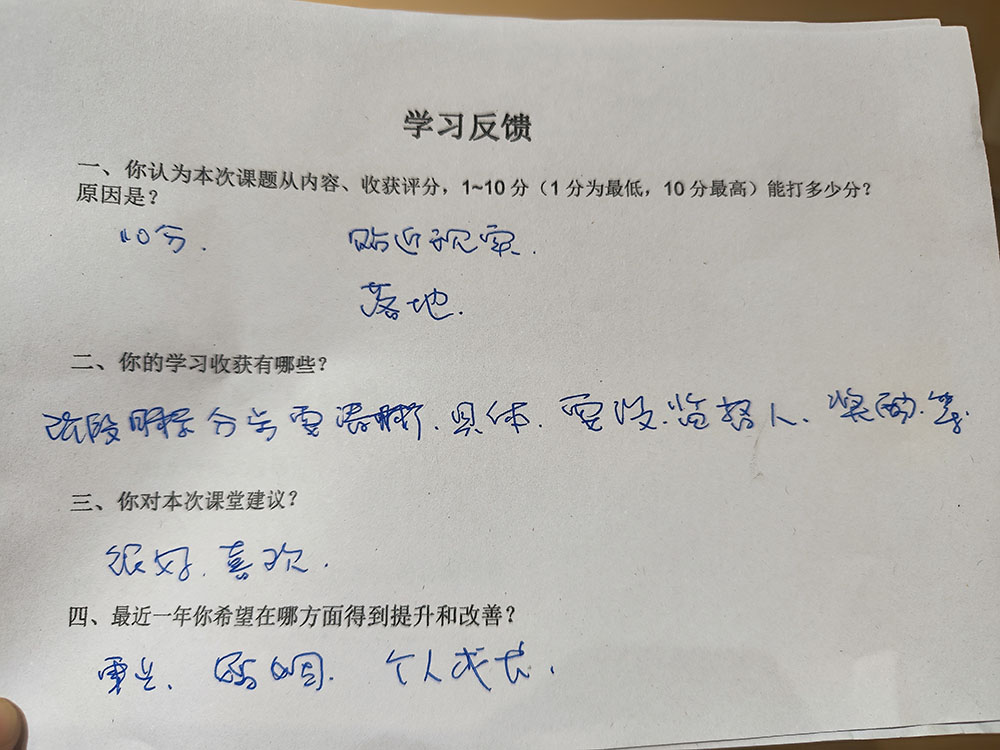 学习反馈
一、你认为本次课题从内容、收获评分，1~10 分（1 分为最低，10 分最高）能打多少分？
原因是？
10分. 贴近现实.
落地.
二、你的学习收获有哪些？
分 要清晰. 具体. 要设. 监督人. 奖励. 等
三、你对本次课堂建议？
很好. 喜欢.
四、最近一年你希望在哪方面得到提升和改善？
事业. 婚姻. 个人成长.